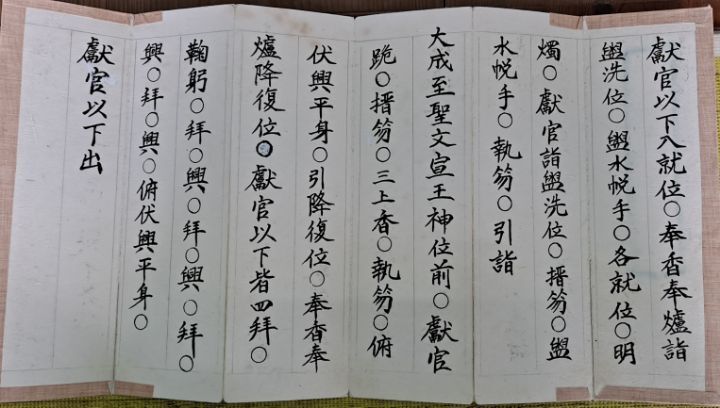 獻官以下入就位○奉香奉爐詣
盥洗位○盥水帨手○各就位○明
燭○獻官詣盥洗位○搢笏○盥
水帨手○執笏○引詣
大成至聖文宣王神位前○獻官
跪○搢笏○三上香○執笏○俯
伏興平身○引降復位○奉香奉
爐降復位○獻官以下皆四拜○
鞠躬○拜○興○拜○興○拜○
興○拜○興○俯伏興平身○
獻官以下出